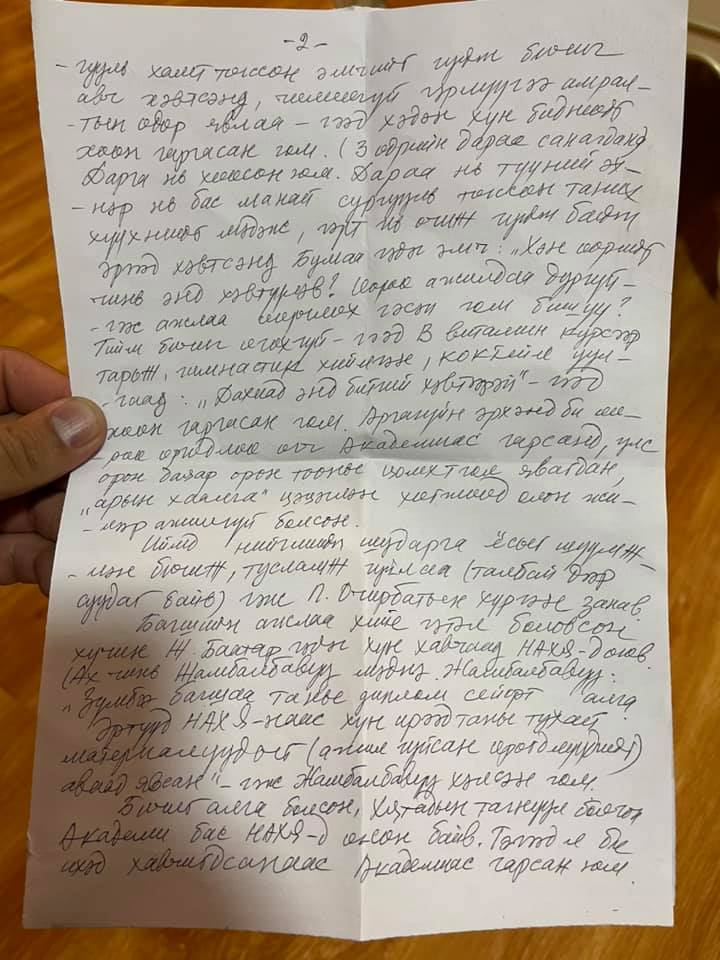 -2-
- гууль хамт төгссөн эмчийг гуйж бичиг
авч хэвтсэнд, чимээгүй гэрлүүгээ амрал-
- тын өдөр явлаа - гээд хэдэн хүн биднийг
хөөн гаргасан юм. (3 өдрийн дараа санагдана
Дарга нь хөөсөн юм. Дараа нь түүний эх-
- нэр нь бас манай сургууль төгссөн таних
хүүхнийг мэдэж, гэрт нь очиж гуйж байж
эргээд хэвтсэнд Бумаа гэдэг эмч: „Хэн өөрийг
чинь энд хэвтүүлэв? Өөрөө ажилдаа дургүй -
- гэж ажлаа өөрчлөх гэсэн юм бишүү?
Тийм бичиг өгөхгүй - гээд В витамин курсээр
тарьж, гимнастик хийлгэж, коктейль уул-
- гаад: „Дахиад энд битгий хэвтээрэй" - гээд
хөөн гаргасан юм. Аргагүйн эрхэнд би өө-
- рөө өргөдлөө өгч Академиас гарсанд, улс
орон даяар орон тооны цомхтгол явагдан,
„арын хаалга" цэцэглэн хөгжөөд олон жи-
- лээр ажилгүй болсон.
Иймд нийгмийн шударга ёсыг шүүмж-
- лэж бичиж, тусламж гуйлаа (талбай дээр
суудаг байв) гэж П. Очирбатын хүргэж занав.
Багшийн ажлаа хийе гэтэл боловсон
хүчин Ж. Баатар гэдэг хүн хавчаад НАХЯ-д өгөв.
(Ах чинь Жамбалбавуу мэднэ Жамбалбавуу:
„Зүмбэ багшаа таны диплом сейфт алга
Эртүүд НАХЯ-наас хүн ирээд таны тухай
материалуудыг (ажил гуйсан өргөдлүүдийг)
аваад явсан" - гэж Жамбалбавуу хэлсэн юм.
Бичиг алга болсон, Хятадын тагнуул болгон
Академи бас НАХЯ-д өгсөн байв. Тэгээд л би
ихэд хавчигдсанаас Академиас гарсан юм.